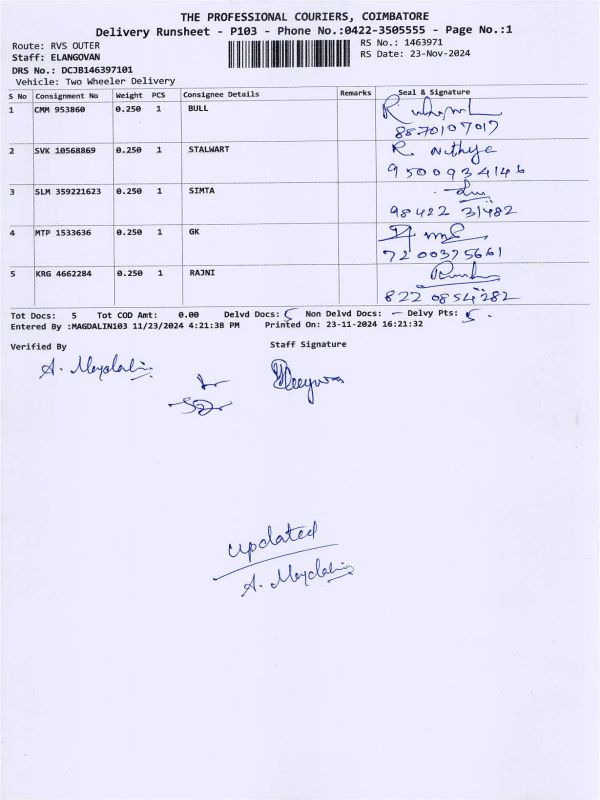 THE PROFESSIONAL COURIERS, COIMBATORE
Delivery Runsheet - P103 - Phone No.:0422-3505555 - Page No.:1
Route: RVS OUTER RS No.: 1463971
Staff: ELANGOVAN RS Date: 23-Nov-2024
DRS No.: DCJB146397101
Vehicle: Two Wheeler Delivery
S No Consignment No Weight PCS Consignee Details Remarks Seal & Signature
1 CMM 953860 0.250 1 BULL
8870107017
2 SVK 10568869 0.250 1 STALWART R. Nithya
9500934146
3 SLM 359221623 0.250 1 SIMTA
98422 31482
4 MTP 1533636 0.250 1 GK
7200375661
5 KRG 4662284 0.250 1 RAJNI
822 0854282
Tot Docs: 5 Tot COD Amt: 0.00 Delvd Docs: 5 Non Delvd Docs: - Delvy Pts: 5.
Entered By :MAGDALIN103 11/23/2024 4:21:38 PM Printed On: 23-11-2024 16:21:32
Verified By Staff Signature
A. Magdalin
updated
A. Magdalin